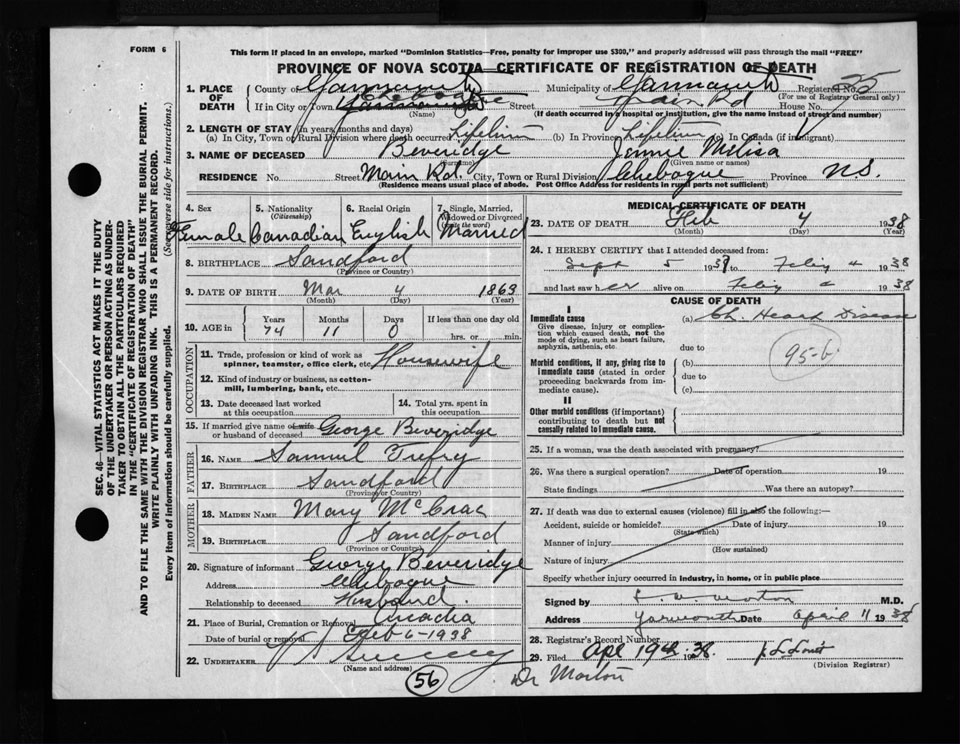 FORM 6
This form if placed in an envelope, marked "Dominion Statistics—Free, penalty for improper use $300," and properly addressed will pass through the mail "FREE"
PROVINCE OF NOVA SCOTIA—CERTIFICATE OF REGISTRATION OF DEATH
1. PLACE OF DEATH
County of Yarmouth Municipality of Yarmouth Registered No. 25
(For use of Registrar General only)
If in City or Town Street Main Rd House No.
(Name) (If death occurred in a hospital or institution, give the name instead of street and number)
2. LENGTH OF STAY (in years, months and days)
(a) In City, Town or Rural Division where death occurred Lifetime (b) In Province Lifetime (c) In Canada (if immigrant)
3. NAME OF DECEASED Beveridge Jennie Melisa
(Given name or names)
RESIDENCE No. Street Main Rd. City, Town or Rural Division Chebogue Province N.S.
(Residence means usual place of abode. Post Office Address for residents in rural parts not sufficient)
4. Sex Female
5. Nationality (Citizenship) Canadian
6. Racial Origin English
7. Single, Married, Widowed or Divorced (Write the word) Married
8. BIRTHPLACE Sandford
(Province or Country)
9. DATE OF BIRTH Mar 4 1863
(Month) (Day) (Year)
10. AGE in Years 74 Months 11 Days 0 If less than one day old
hrs. or min.
OCCUPATION
11. Trade, profession or kind of work as spinner, teamster, office clerk, etc. Housewife
12. Kind of industry or business, as cotton-mill, lumbering, bank, etc.
13. Date deceased last worked at this occupation
14. Total yrs. spent in this occupation
15. If married give name of wife or husband of deceased George Beveridge
FATHER
16. NAME Samuel Trefry
17. BIRTHPLACE Sandford
(Province or Country)
MOTHER
18. MAIDEN NAME Mary McCrae
19. BIRTHPLACE Sandford
(Province or Country)
20. Signature of informant George Beveridge
Address Chebogue
Relationship to deceased Husband.
21. Place of Burial, Cremation or Removal Arcadia
Date of burial or removal Feb 6-1938
22. UNDERTAKER
(Name and address)
56
MEDICAL CERTIFICATE OF DEATH
23. DATE OF DEATH Feb 4 1938
(Month) (Day) (Year)
24. I HEREBY CERTIFY that I attended deceased from:
Sept 5 1937 to Feby 4 1938
and last saw her alive on Feby 4 1938
CAUSE OF DEATH
I
Immediate cause
Give disease, injury or complication which caused death, not the mode of dying, such as heart failure, asphyxia, asthenia, etc.
(a) Ch. Heart Disease
due to
95-b
Morbid conditions, if any, giving rise to immediate cause (stated in order proceeding backwards from immediate cause).
(b)
due to
(c)
II
Other morbid conditions (if important) contributing to death but not causally related to immediate cause.
25. If a woman, was the death associated with pregnancy?
26. Was there a surgical operation? Date of operation 19
State findings Was there an autopsy?
27. If death was due to external causes (violence) fill in also the following:—
Accident, suicide or homicide? Date of injury 19
(State which)
Manner of injury
(How sustained)
Nature of injury
Specify whether injury occurred in industry, in home, or in public place
Signed by Morton M.D.
Address Yarmouth Date April 11 1938
28. Registrar's Record Number
29. Filed Apl 19th 1938.
(Division Registrar)
Dr Morton
SEC. 46—VITAL STATISTICS ACT MAKES IT THE DUTY OF THE UNDERTAKER OR PERSON ACTING AS UNDERTAKER TO OBTAIN ALL THE PARTICULARS REQUIRED IN THE "CERTIFICATE OF REGISTRATION OF DEATH" AND TO FILE THE SAME WITH THE DIVISION REGISTRAR WHO SHALL ISSUE THE BURIAL PERMIT.
WRITE PLAINLY WITH UNFADING INK. THIS IS A PERMANENT RECORD.
Every item of information should be carefully supplied. (See reverse side for instructions.)